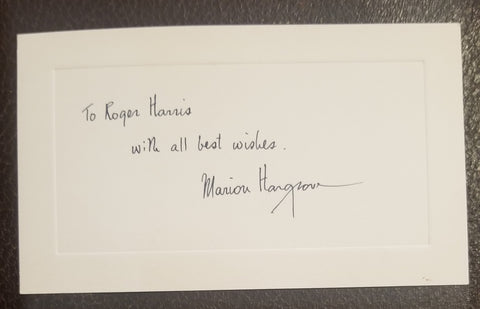 To Roger Harris
with all best wishes.
Marion Hargrove